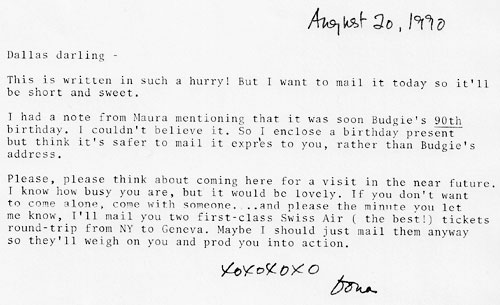 August 20, 1990
Dallas darling -
This is written in such a hurry! But I want to mail it today so it'll
be short and sweet.
I had a note from Maura mentioning that it was soon Budgie's 90th
birthday. I couldn't believe it. So I enclose a birthday present
but think it's safer to mail it expres to you, rather than Budgie's
address.
Please, please think about coming here for a visit in the near future.
I know how busy you are, but it would be lovely. If you don't want
to come alone, come with someone. ..and please the minute you let
me know, I'll mail you two first-class Swiss Air ( the best!) tickets
round-trip from NY to Geneva. Maybe I should just mail them anyway
so they'll weigh on you and prod you into action.
xoxoxoxo